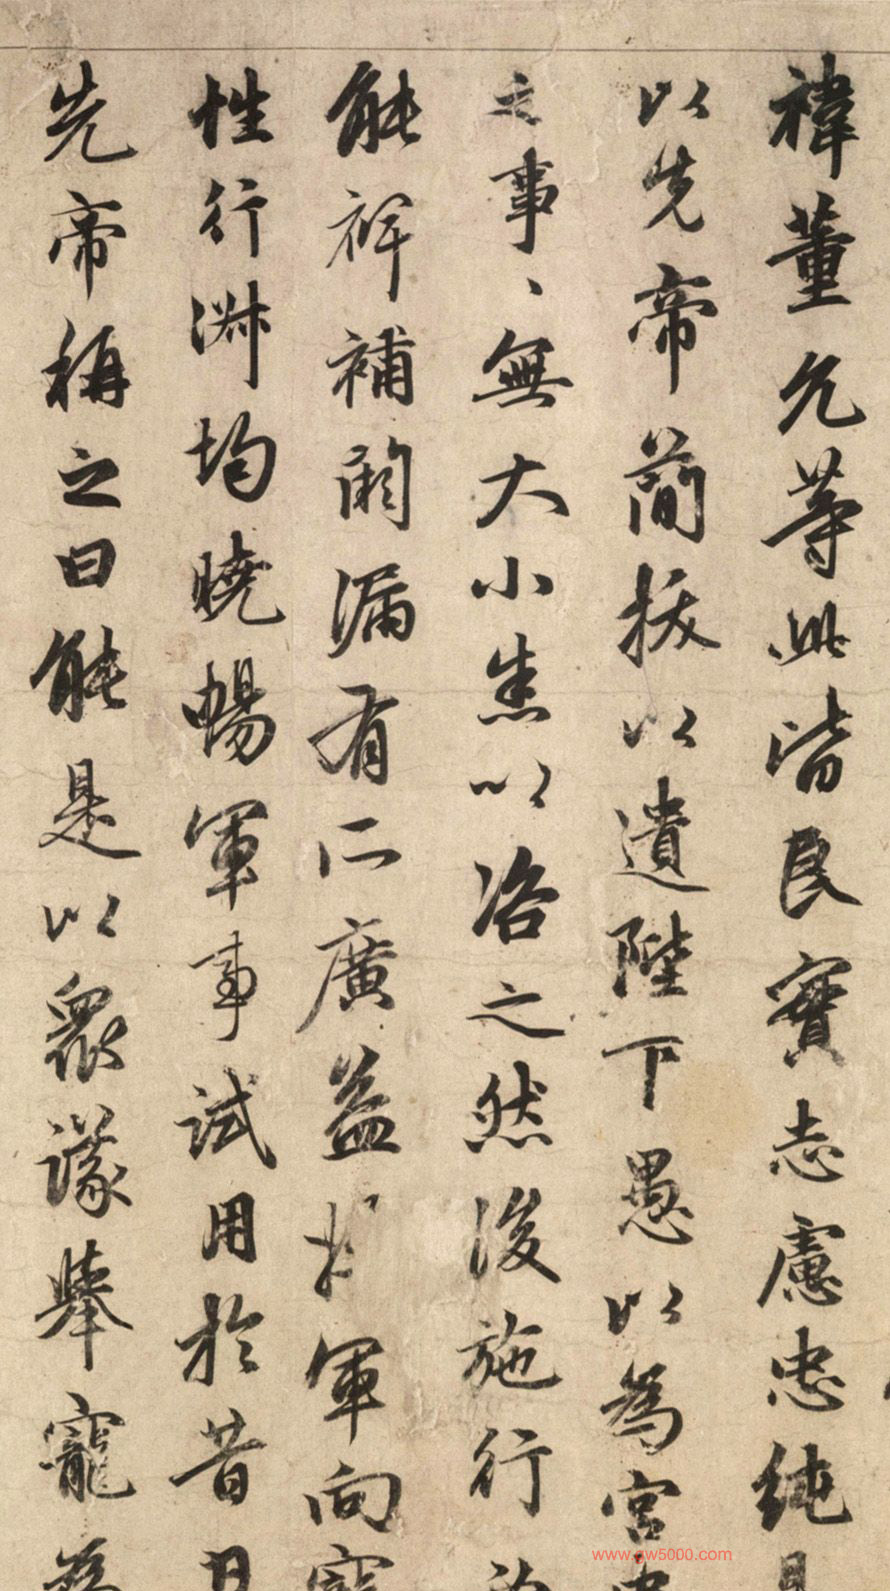 禕董允等此皆良實志慮忠純是
以先帝簡拔以遺陛下愚以為宮中
之事、無大小悉以咨之然後施行必
能裨補闕漏有所廣益將軍向寵
性行淑均曉暢軍事試用於昔日
先帝稱之曰能是以衆議舉寵為
www.gw5000.com